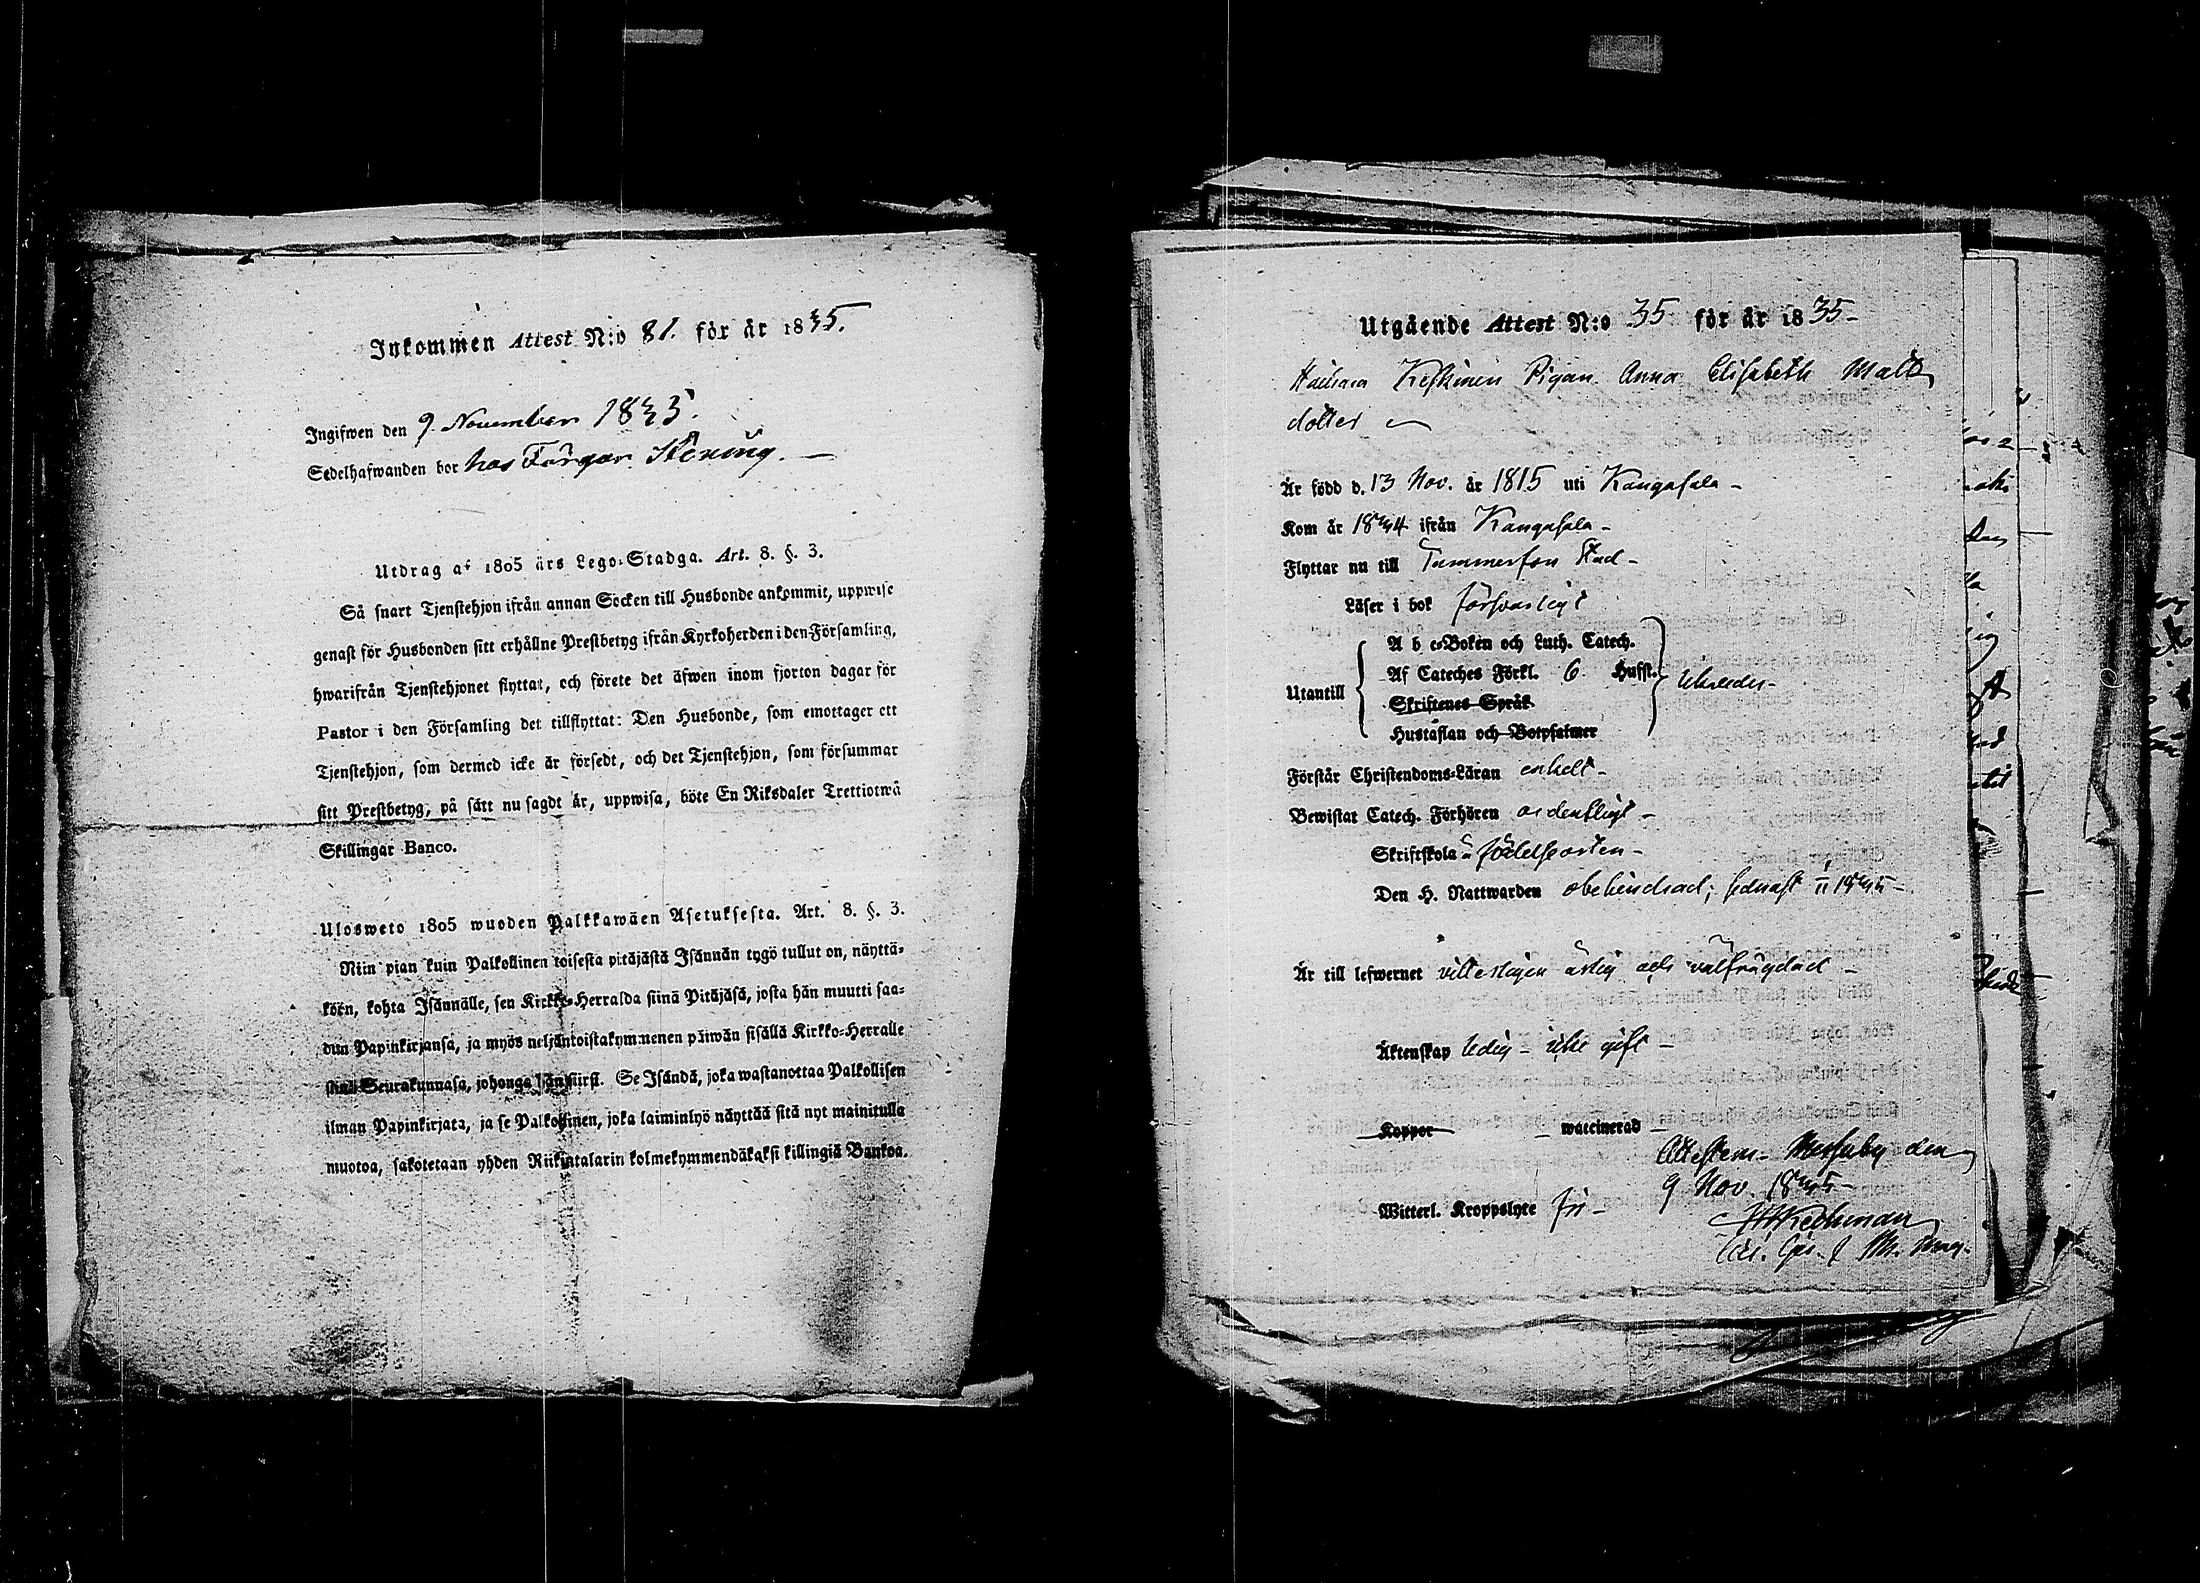 Inkommen Attest N:o 81. för år 1835.
Ingifwen den 9 November 1835.
Sedelhafwanden bor hos Färgar Stening. —
Utdrag af 1805 års Lego-Stadga. Art. 8. §. 3.
Så snart Tjenstehjon ifrån annan Socken till Husbonde ankommit, uppwise
genast för Husbonden sitt erhållne Prestbetyg ifrån Kyrkoherden i den Församling,
hwarifrån Tjenstehjonet flyttat, och förete det äfwen inom fjorton dagar för
Pastor i den Församling det tillflyttat: Den Husbonde, som emottager ett
Tjenstehjon, som dermed icke är försedt, och det Tjenstehjon, som försummar
sitt Prestbetyg, på sätt nu sagdt är, uppwisa, böte En Riksdaler Trettiotwå
Skillingar Banco.
Ulosweto 1805 wuoden Palkkawäen Asetuksesta. Art. 8. §. 3.
Niin pian kuin Palkollinen toisesta pitäjästä Isännän tygö tullut on, näyttä-
köön, kohta Isännälle, sen Kirkko-Herralda siinä Pitäjäsä, josta hän muutti saa-
dun Papinkirjansa, ja myös neljäntoistakymmenen päiwän sisällä Kirkko-Herralle
siinä Seurakunnasa, johonga hän siirsi. Se Isändä, joka wastanottaa Palkollisen
ilman Papinkirjata, ja se Palkollinen, joka laiminlyö näyttää sitä nyt mainitulla
muotoa, sakotetaan yhden Riikintalarin kolmekymmendäkaksi killingiä Bankoa.
Utgående Attest N:o 35 för år 1835-
Keskinen Pigan Anna Elisabeth Matts
dotter
Är född d. 13 Nov. år 1815 uti Kangasala -
Kom år 1834 ifrån Kangasala -
Flyttar nu till Tammerfors Stad -
Läser i bok försvarligt
A b c-Boken och Luth. Catech.
Utantill Af Cateches Förkl. 6. Hufst.
Skriftenes Språk
Hustaflan och Botpsalmer
Förstår Christendoms-Läran enkelt -
Bewistat Catech. Förhören ordentligt -
Skriftskola å födelseorten -
Den H. Nattwarden obehindrad; sednast 1835 -
Är till lefwernet ärlig och välfrägdad -
Äktenskap ledig - icke gift -
Koppor — waccinerad —
Attestera- Messuby den
9 Nov. 1835 -
Witterl. Kroppslyte fri -